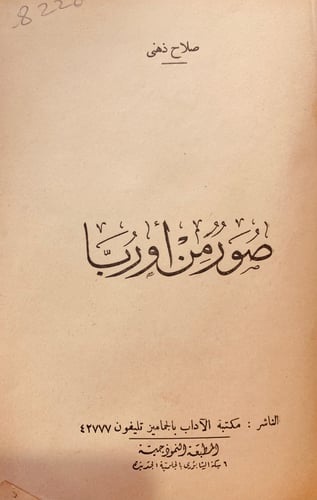 8226
صلاح ذهنى
صُوَرٌ مِنْ أوربَّا
الناشر : مكتبة الآداب بالجماميز تليفون ٤٢٧٧٧
المطبعة النموذجية
٦ سكة الشابورى بالحلمية الجديدة